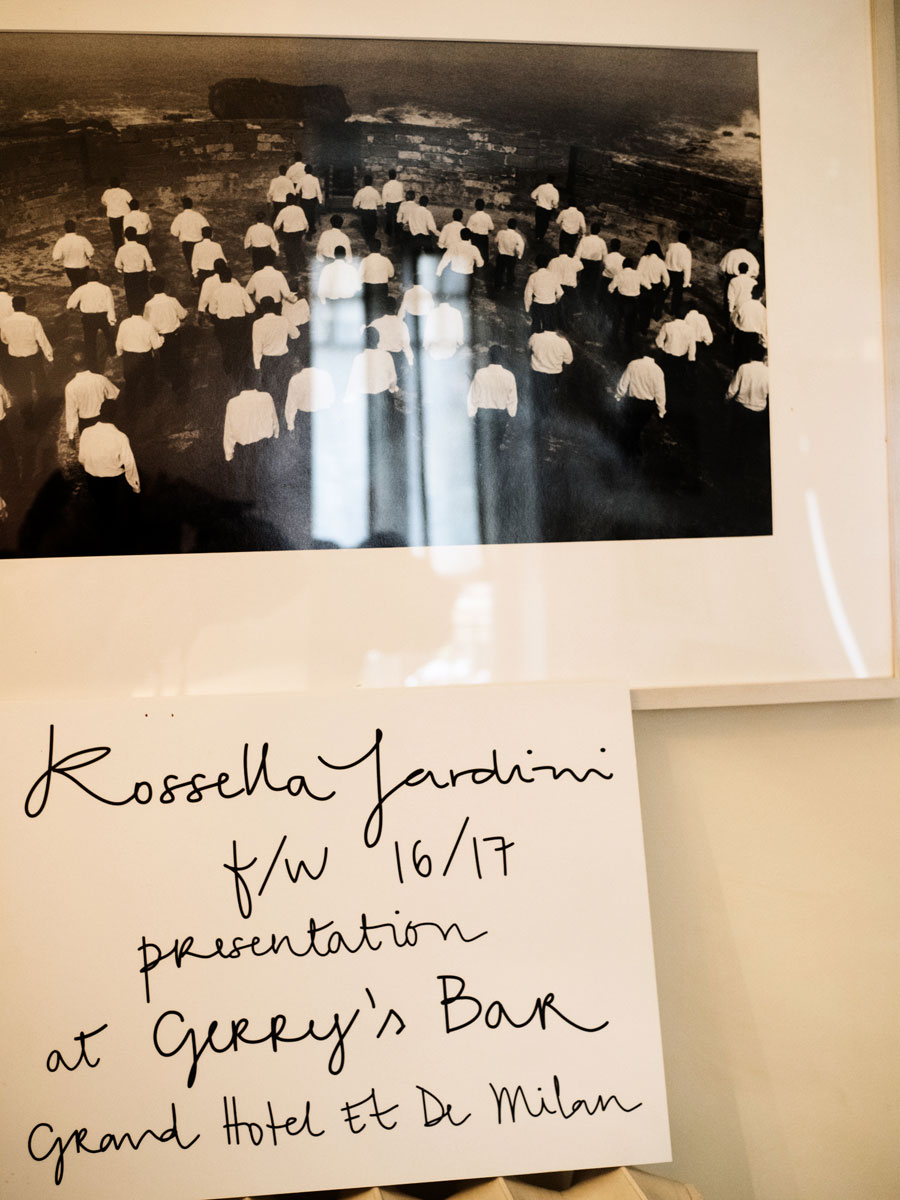 Rossella Jardini
f/w 16/17
presentation
at Gerry's Bar
Grand Hotel Et De Milan